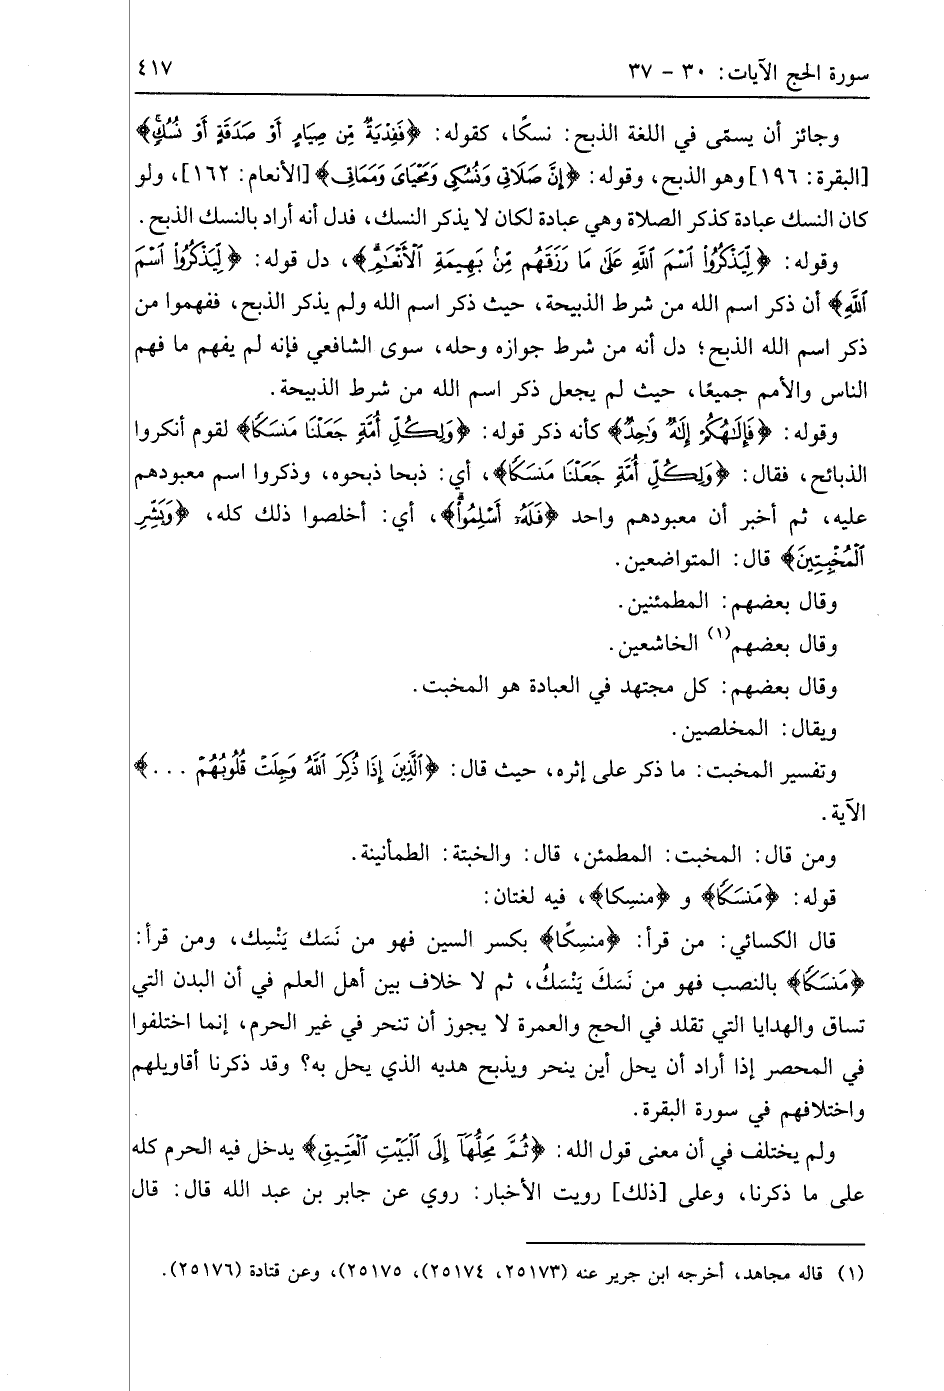 سورة الحج الآيات: ٣٠ - ٣٧ ٤١٧
وجائز أن يسمّى في اللغة الذبح: نسكًا، كقوله: ﴿فَفِدْيَةٌ مِّن صِيَامٍ أَوْ صَدَقَةٍ أَوْ نُسُكٍ﴾
[البقرة: ١٩٦] وهو الذبح، وقوله: ﴿إِنَّ صَلَاتِى وَنُسُكِى وَمَحْيَاىَ وَمَمَاتِى﴾ [الأنعام: ١٦٢]، ولو
كان النسك عبادة كذكر الصلاة وهي عبادة لكان لا يذكر النسك، فدل أنه أراد بالنسك الذبح.
وقوله: ﴿لِّيَذْكُرُوا۟ ٱسْمَ ٱللَّهِ عَلَىٰ مَا رَزَقَهُم مِّنۢ بَهِيمَةِ ٱلْأَنْعَٰمِۗ﴾، دل قوله: ﴿لِّيَذْكُرُوا۟ ٱسْمَ
ٱللَّهِ﴾ أن ذكر اسم الله من شرط الذبيحة، حيث ذكر اسم الله ولم يذكر الذبح، ففهموا من
ذكر اسم الله الذبح؛ دل أنه من شرط جوازه وحله، سوى الشافعي فإنه لم يفهم ما فهم
الناس والأمم جميعًا، حيث لم يجعل ذكر اسم الله من شرط الذبيحة.
وقوله: ﴿فَإِلَٰهُكُمْ إِلَٰهٌ وَٰحِدٌ﴾ كأنه ذكر قوله: ﴿وَلِكُلِّ أُمَّةٍ جَعَلْنَا مَنسَكًا﴾ لقوم أنكروا
الذبائح، فقال: ﴿وَلِكُلِّ أُمَّةٍ جَعَلْنَا مَنسَكًا﴾، أي: ذبحا ذبحوه، وذكروا اسم معبودهم
عليه، ثم أخبر أن معبودهم واحد ﴿فَلَهُۥٓ أَسْلِمُوا۟ۗ﴾، أي: أخلصوا ذلك كله، ﴿وَبَشِّرِ
ٱلْمُخْبِتِينَ﴾ قال: المتواضعين.
وقال بعضهم: المطمئنين.
وقال بعضهم(١) الخاشعين.
وقال بعضهم: كل مجتهد في العبادة هو المخبت.
ويقال: المخلصين.
وتفسير المخبت: ما ذكر على إثره، حيث قال: ﴿ٱلَّذِينَ إِذَا ذُكِرَ ٱللَّهُ وَجِلَتْ قُلُوبُهُمْ ...﴾
الآية.
ومن قال: المخبت: المطمئن، قال: والخبتة: الطمأنينة.
قوله: ﴿مَنسَكًا﴾ و ﴿منسِكا﴾، فيه لغتان:
قال الكسائي: من قرأ: ﴿منسِكًا﴾ بكسر السين فهو من نَسَك يَنْسِك، ومن قرأ:
﴿مَنسَكًا﴾ بالنصب فهو من نَسَكَ يَنْسَكُ، ثم لا خلاف بين أهل العلم في أن البدن التي
تساق والهدايا التي تقلد في الحج والعمرة لا يجوز أن تنحر في غير الحرم، إنما اختلفوا
في المحصر إذا أراد أن يحل أين ينحر ويذبح هديه الذي يحل به؟ وقد ذكرنا أقاويلهم
واختلافهم في سورة البقرة.
ولم يختلف في أن معنى قول الله: ﴿ثُمَّ مَحِلُّهَآ إِلَى ٱلْبَيْتِ ٱلْعَتِيقِ﴾ يدخل فيه الحرم كله
على ما ذكرنا، وعلى [ذلك] رويت الأخبار: روي عن جابر بن عبد الله قال: قال
(١) قاله مجاهد، أخرجه ابن جرير عنه (٢٥١٧٣، ٢٥١٧٤)، ٢٥١٧٥)، وعن قتادة (٢٥١٧٦).